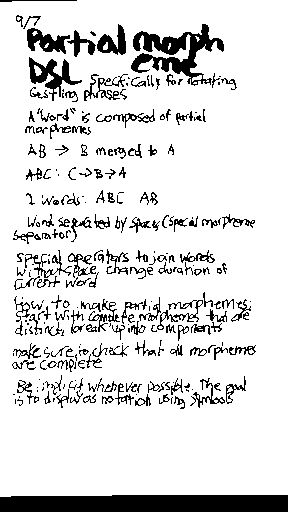 9/7
Partial morph
eme
DSL Specifically for notating
Gestling phrases
A "Word" is composed of partial
morphemes
AB → B merged to A
ABC: C→B→A
2 words: ABC AB
Word separated by space (special morpheme
separator)
Special operators to join words
without space, change duration of
current word
How to make partial morphemes:
Start with complete morphemes that are
distinct, break up into components
make sure to check that all morphemes
are complete
Be implicit whenever possible. The goal
is to display as notation using symbols